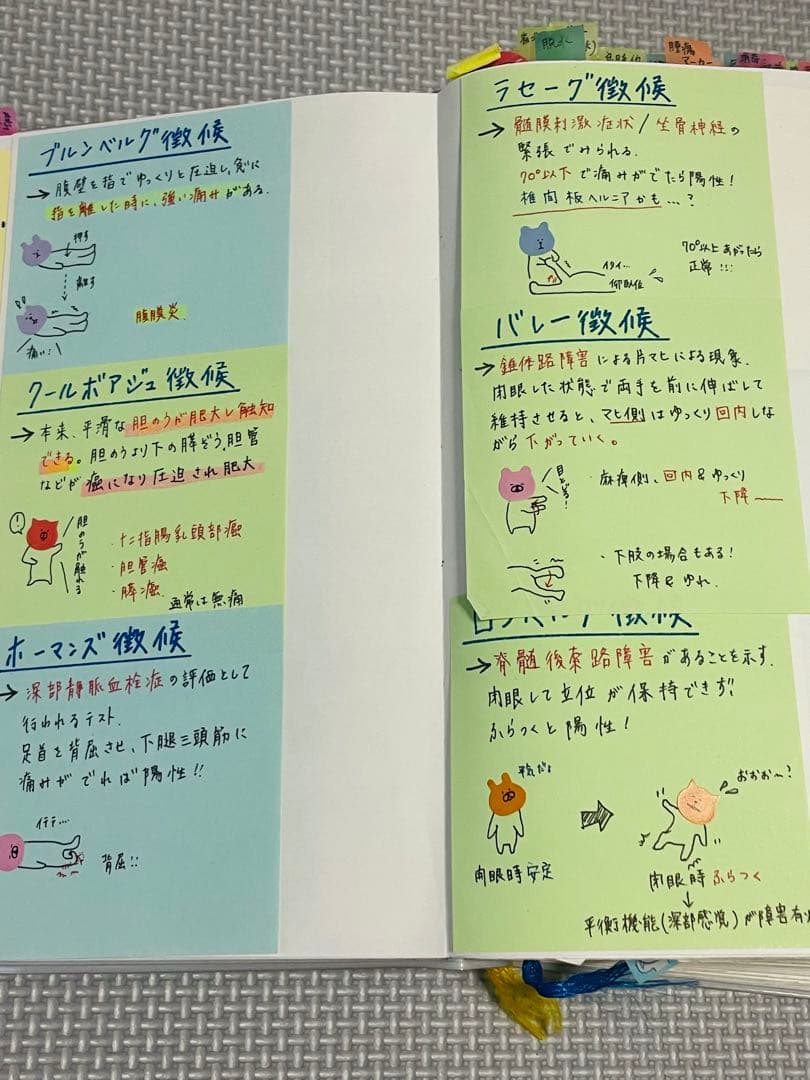 ブルンベルグ徴候
→ 腹壁を指でゆっくりと圧迫し、急に
指を離した時に、強い痛みがある。
押す
離す
痛い
腹膜炎
クールボアジュ徴候
→ 本来、平滑な胆のうが肥大し触知
できる。胆のうより下の膵ぞう、胆管
などが癌になり圧迫され肥大
!
胆のうが触れる
・十二指腸乳頭部癌
・胆管癌
・膵癌
通常は無痛
ホーマンズ徴候
→ 深部静脈血栓症の評価として
行われるテスト.
足首を背屈させ、下腿三頭筋に
痛みがでれば陽性!!
イテテ...
背屈!!
脱水
腫瘍
マーカー
ラセーグ徴候
→ 髄膜刺激症状/坐骨神経の
緊張でみられる.
70°以下で痛みがでたら陽性!
椎間板ヘルニアかも...?
イタイ...
仰臥位
70°以上あがったら
正常!!!
バレー徴候
→ 錐体路障害による片マヒによる現象.
閉眼した状態で両手を前に伸ばして
維持させると、マヒ側はゆっくり回内しな
がら下がっていく。
・麻痺側、回内&ゆっくり
下降
・下肢の場合もある!
下降&ゆれ.
→ 脊髄後索路障害があることを示す.
閉眼して立位が保持できず!!
ふらつくと陽性!
平気だよ
おおお〜?
閉眼時安定
閉眼時ふらつく
↓
平衡機能(深部感覚)が障害有